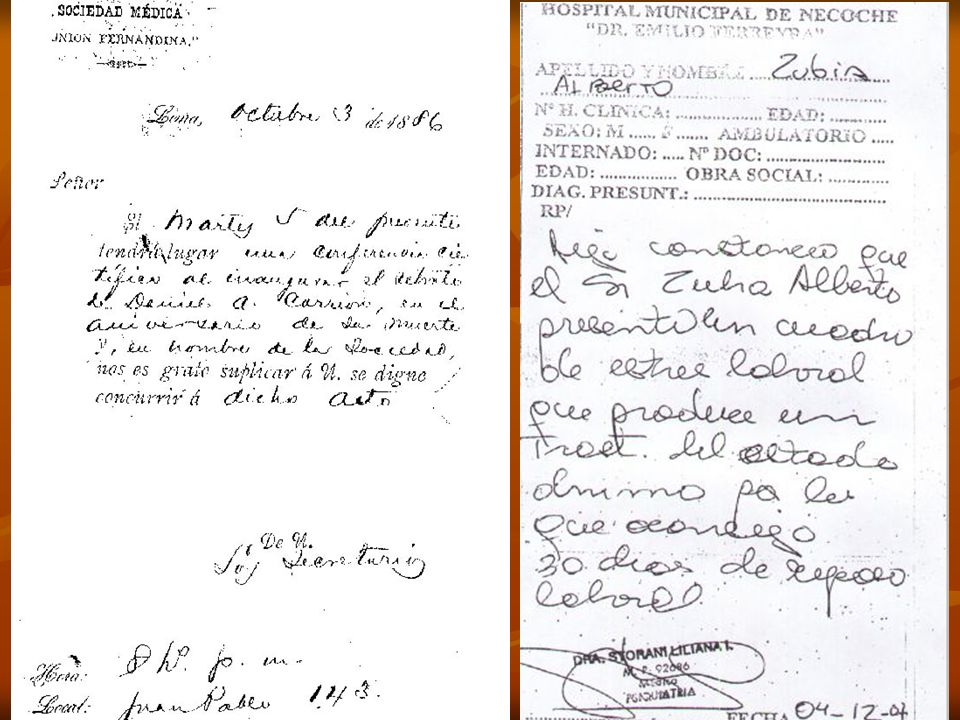 SOCIEDAD MÉDICA
UNION FERNANDINA."
Lima, octubre 3 de 1886
Señor
El Martes 5 del presente
tendrá lugar una conferencia cie
tífica al inaugurar el retrato
de Daniel A. Carrión, en el
aniversario de su muerte
y, en nombre de la Sociedad,
nos es grato suplicar á U. se digne
concurrir á dicho acto
De U.
Secretario
Hora: 8 h. p. m.
Local: Juan Pablo 143.
HOSPITAL MUNICIPAL DE NECOCHE
"DR. EMILIO FERREYRA"
APELLIDO Y NOMBRE ........ Zubia
ALBERTO
Nº H. CLINICA: .................. EDAD: ............
SEXO: M ...... F ....... AMBULATORIO .....
INTERNADO: ..... Nº DOC: .........................
EDAD: ................. OBRA SOCIAL: .............
DIAG. PRESUNT.: ........................................
RP/
Dejo constancia que
el Sr Zubia Alberto
presenta un cuadro
de estres laboral
que produce un
Trast. del estado
de animo por lo
que aconsejo
30 dias de reposo
laboral
DRA. STORANI LILIANA I.
M. P. 92686
PSIQUIATRIA
FECHA 04-12-07